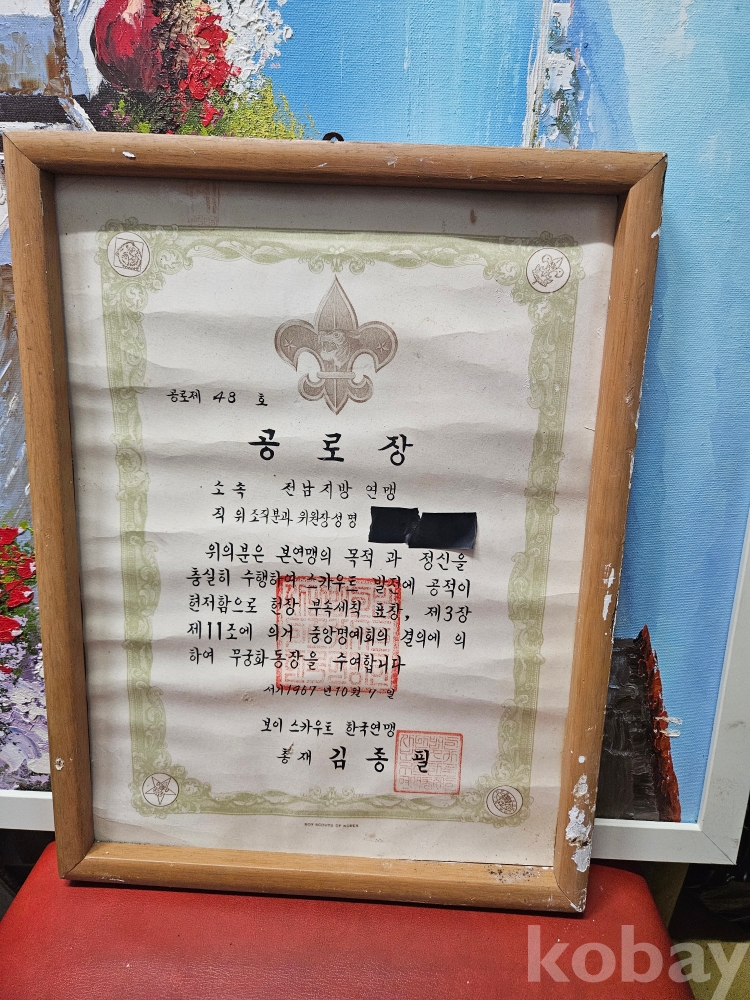 공로제 43 호
공 로 장
소 속 전남지방 연맹
직 위 조직분과 위원장 성 명
위의분은 본연맹의 목적 과 정신을
충실히 수행하여 스카우트 발전에 공적이
현저함으로 헌장 부속세칙 표장, 제3장
제11조에 의거 중앙명예회의 결의에 의
하여 무궁화동장을 수여합니다
서기 1967 년 10 월 일
보이 스카우트 한국연맹
총 재 김 종 필
BOY SCOUTS OF KOREA
kobay